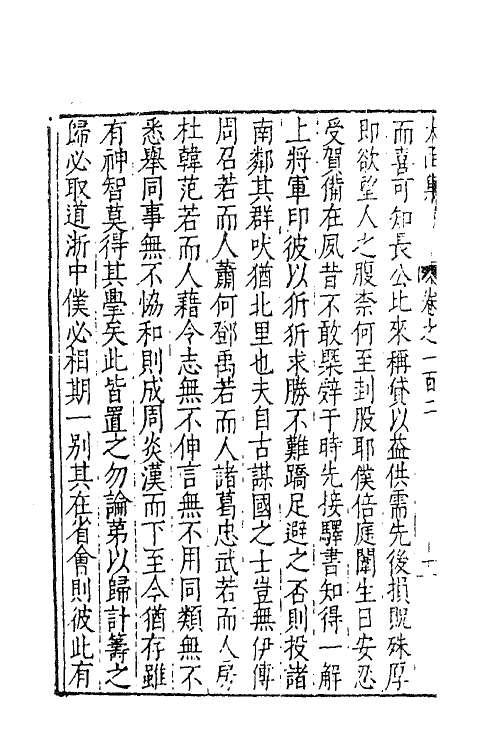 太函集 卷之一百二
而喜可知長公比來稱貸以益供需先後損貺殊厚
即欲望人之腹柰何至刲股耶僕倍庭闈生日安忍
受賀僃在夙昔不敢槩辭于時先接驛書知得一解
上將軍印彼以狾狾求勝不難蹻足避之否則投諸
南鄰其群吠猶北里也夫自古謀國之士豈無伊傅
周召若而人蕭何鄧禹若而人諸葛忠武若而人房
杜韓范若而人藉令志無不伸言無不用同類無不
悉舉同事無不恊和則成周炎漢而下至今猶存雖
有神智莫得其學矣此皆置之勿論苐以歸計籌之
歸必取道浙中僕必相期一別其在省會則彼此有